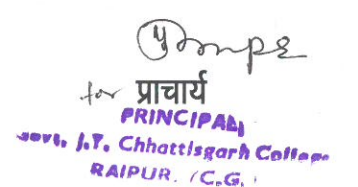 for प्राचार्य
PRINCIPAL,
Govt. J.Y. Chhattisgarh College
RAIPUR. (C.G.)